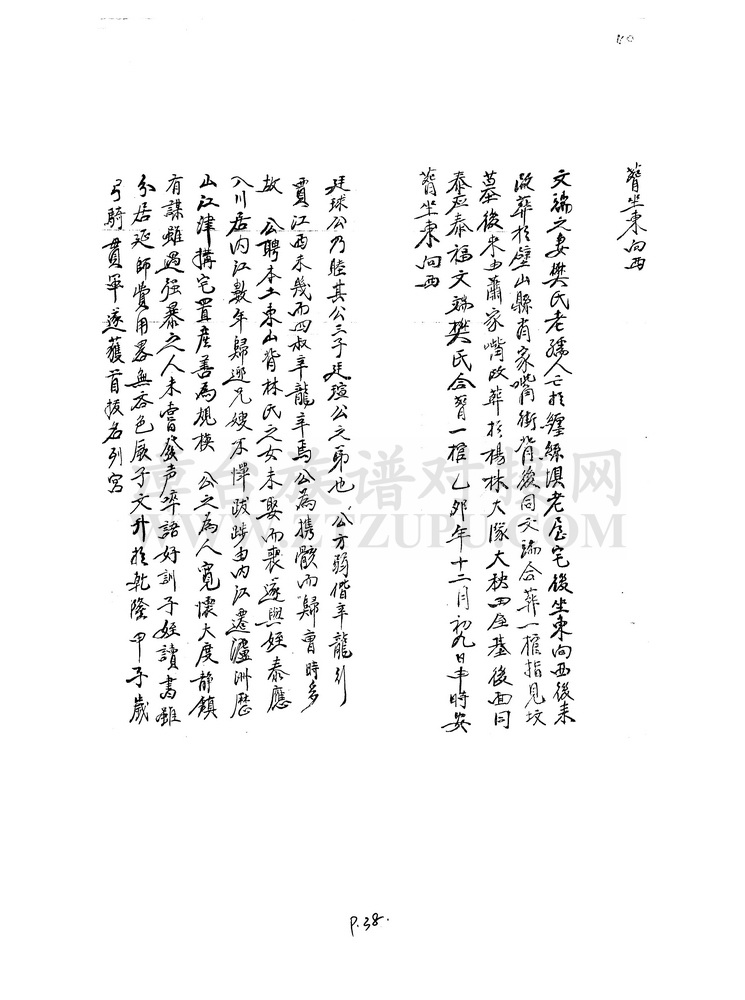 葬坐東向西
文端之妻樊氏老孺人亡於纏綿垻老屋宅後坐東向西後來
改葬於壁山縣肖家嘴街背後同文端合葬一棺指見坟
墓後来由蕭家嘴改葬於楊林大隊大秧田屋基後面同
泰应泰福文端樊氏合葬一棺乙卯年十二月初九日申時安
葬坐東向西
廷球公乃睦其公三子廷瑄公之弟也 公方弱偕辛龍引
賈江西未幾而四叔辛龍辛馬公為携骸而歸曹時多
故 公聘本土東山背林氏之女未娶而喪遂與姪泰應
入川居内江數年歸迎兄嫂不憚跋踄由内江遷瀘洲歷
山江津搆宅置産善為規模 公之為人寬懷大度靜鎮
有謀雖遇强暴之人未嘗發声啐語好訓子姪讀書雖
分居延師費用畧無吝色厥子文升於乾隆甲子歲
弓騎貫軍遂獲首拔名列宮
P.38.